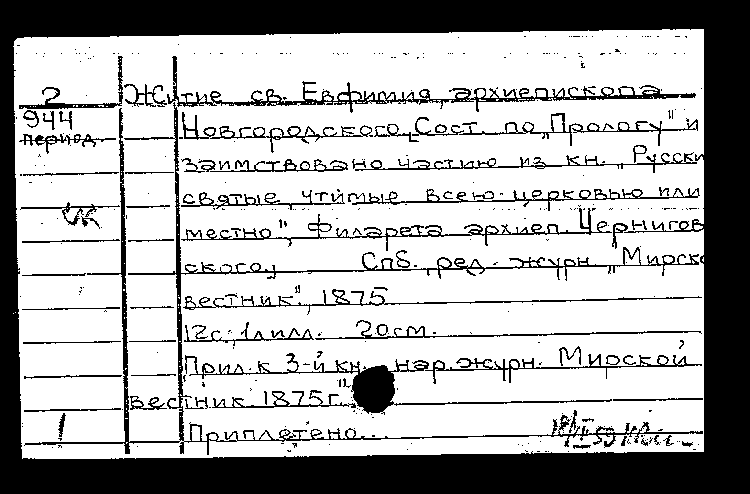 2 Житие св. Евфимия, архиепископа
944 Новгородского. Сост. по „Прологу" и
период. заимствовано частию из кн. „Русски
святые, чтимые всею церковью или
местно", Филарета архиеп. Чернигов
ского, Спб., ред. журн. „Мирск
вестник", 1875
12с., 1 илл. 20см.
Прил. к 3-й кн. нар. журн. Мирской
вестник 1875г."
1 Приплетено...